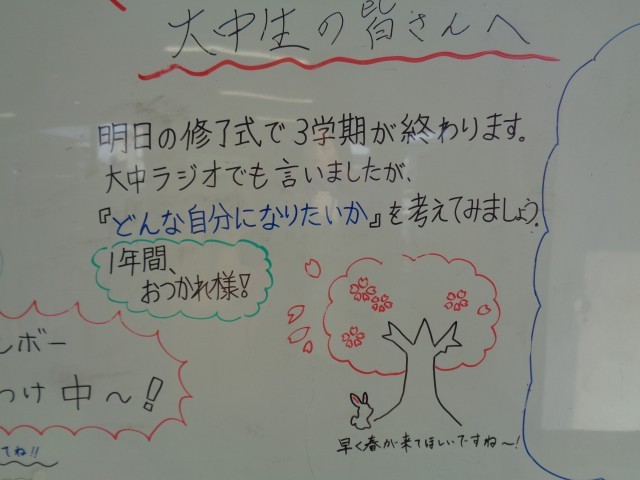 大中生の皆さんへ
明日の修了式で3学期が終わります。
大中ラジオでも言いましたが、
『どんな自分になりたいか』を考えてみましょう。
1年間、
おつかれ様!
レボー
つけ中〜!
てね!!
早く春が来てほしいですね〜!